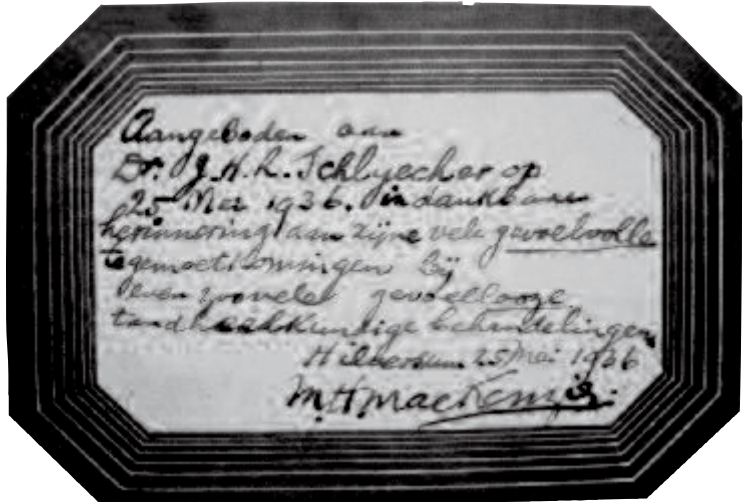 Aangeboden aan
Dr. J. H. L. Schlyecher op
25 Mei 1936. in dankbare
herinnering aan zijne vele gevoelvolle
tegemoetkomingen bij
even zoovele gevoellooze
tandheelkundige behandelingen
Hilversum 25 Mei 1936
M.H. MacKenzie.